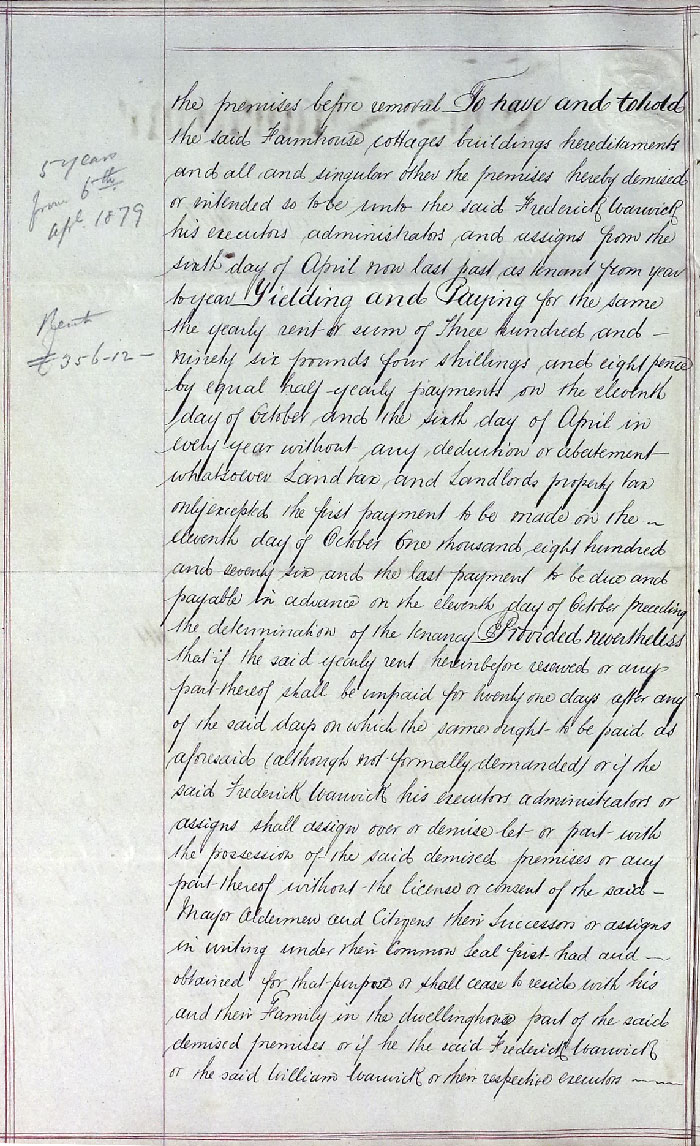 the premises before removal To have and to hold
the said Farmhouse cottages buildings hereditaments
and all and singular other the premises hereby demised
or intended so to be unto the said Frederick Warwick
his executors administrators and assigns from the
sixth day of April now last past as tenant from year
to year Yielding and Paying for the same
the yearly rent or sum of Three hundred and –
ninety six pounds four shillings and eight pence
by equal half yearly payments on the eleventh
day of October and the sixth day of April in
every year without any deduction or abatement
whatsoever Landtax and Landlords property tax
only excepted the first payment to be made on the –
eleventh day of October One thousand eight hundred
and seventy six and the last payment to be due and
payable in advance on the eleventh day of October preceding
the determination of the tenancy Provided nevertheless
that if the said yearly rent hereinbefore reserved or any
part thereof shall be unpaid for twenty one days after any
of the said days on which the same ought to be paid as
aforesaid (although not formally demanded) or if the
said Frederick Warwick his executors administrators or
assigns shall assign over or demise let or part with
the possession of the said demised premises or any
part thereof without the license or consent of the said –
Mayor Aldermen and Citizens their Successors or assigns
in writing under their Common Seal first had and –
obtained for that purpose or shall cease to reside with his
and their Family in the dwellinghouse part of the said
demised premises or if he the said Frederick Warwick
or the said William Warwick or their respective executors – –
5 years
from 6th
Apl. 1879
Rent
£356-12-